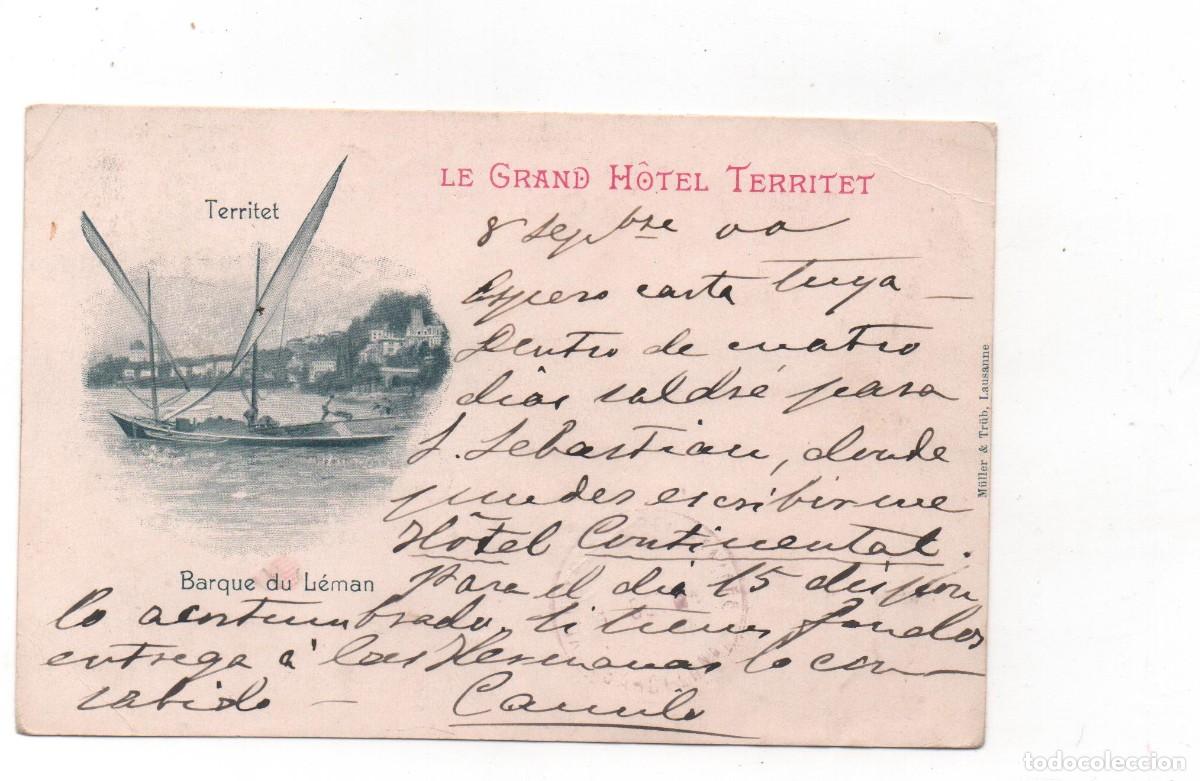 LE GRAND HÔTEL TERRITET
Territet
8 Sepbre 00
Espero carta tuya —
Dentro de cuatro
dias saldré para
S. Sebastian, donde
puedes escribirme
Hôtel Continental.
Para el dia 15 dispon
lo acostumbrado. Si tienes fondos
entrega á las Hermanas lo con
sabido — Camilo
Barque du Léman
Müller & Trüb, Lausanne
todocoleccion